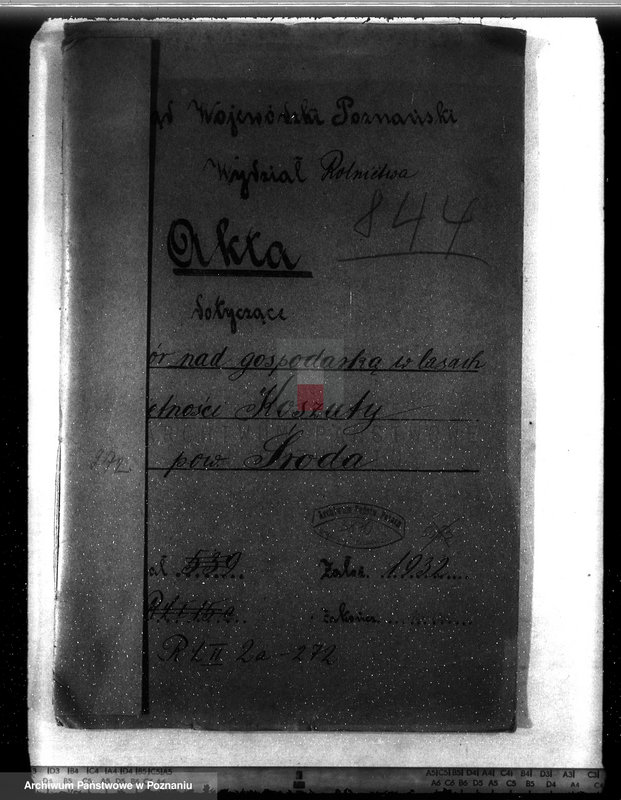 ąd Wojewódzki Poznański
Wydział Rolnictwa
844
Akta
dotyczące
ór nad gospodarką w lasach
ętności Koszuty
pow. Środa
272
al 539
Założ. 1932
Zakończ.
R L II 2a-272
Archiwum Państwowe w Poznaniu